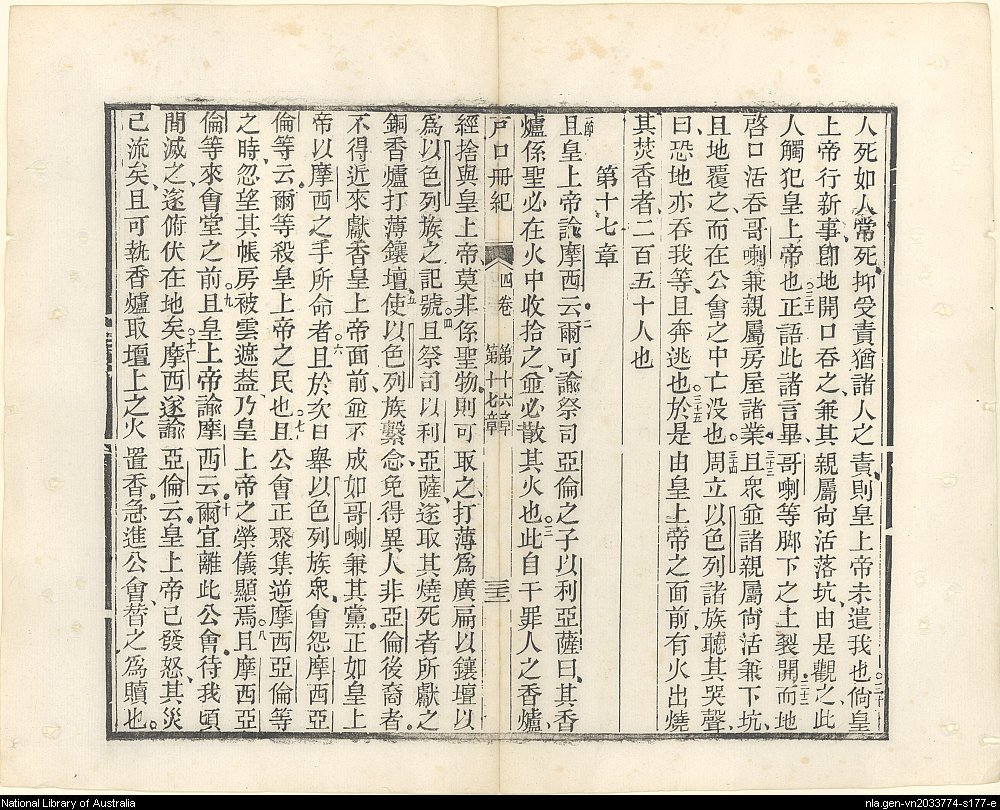 人死如人常死、抑受責猶諸人之責、則皇上帝未遣我也。三十倘皇
上帝行新事、卽地開口吞之、兼其親屬尚活落坑、由是觀之、此
人觸犯皇上帝也。三十一正語此諸言畢、哥喇等脚下之土裂開、三十二而地
啓口、活吞哥喇兼親屬房屋諸業。三十三且衆並諸親屬尚活兼下坑、
且地覆之、而在公會之中亡沒也。三十四周立以色列諸族、聽其哭聲、
曰、恐地亦吞我等、且奔逃也。三十五於是由皇上帝之面前、有火出燒
其焚香者、二百五十人也
第十七章
一節且皇上帝諭摩西云、二爾可諭祭司亞倫之子以利亞薩曰、其香
爐係聖、必在火中收拾之、並必散其火也。三此自干罪人之香爐、
戶口冊紀 四卷 第十六章 第十七章 三三
經捨與皇上帝、莫非係聖物、則可取之、打薄爲廣扁、以鑲壇、以
爲以色列族之記號。四且祭司以利亞薩、遂取其燒死者所獻之
銅香爐、打薄鑲壇、五使以色列族繫念、免得異人非亞倫後裔者、
不得近來獻香皇上帝面前、並不成如哥喇兼其黨、正如皇上
帝以摩西之手所命者。六且於次日舉以色列族衆會怨摩西亞
倫等云、爾等殺皇上帝之民也。七且公會正聚集逆摩西亞倫等
之時、忽望其帳房、被雲遮葢、乃皇上帝之榮儀顯焉。八且摩西亞
倫等來會堂之前。九且皇上帝諭摩西云、十爾宜離此公會、待我頃
間滅之、遂俯伏在地矣。十一摩西遂諭亞倫云、皇上帝已發怒、其災
已流矣、且可執香爐取壇上之火、置香急進公會、替之爲贖也。